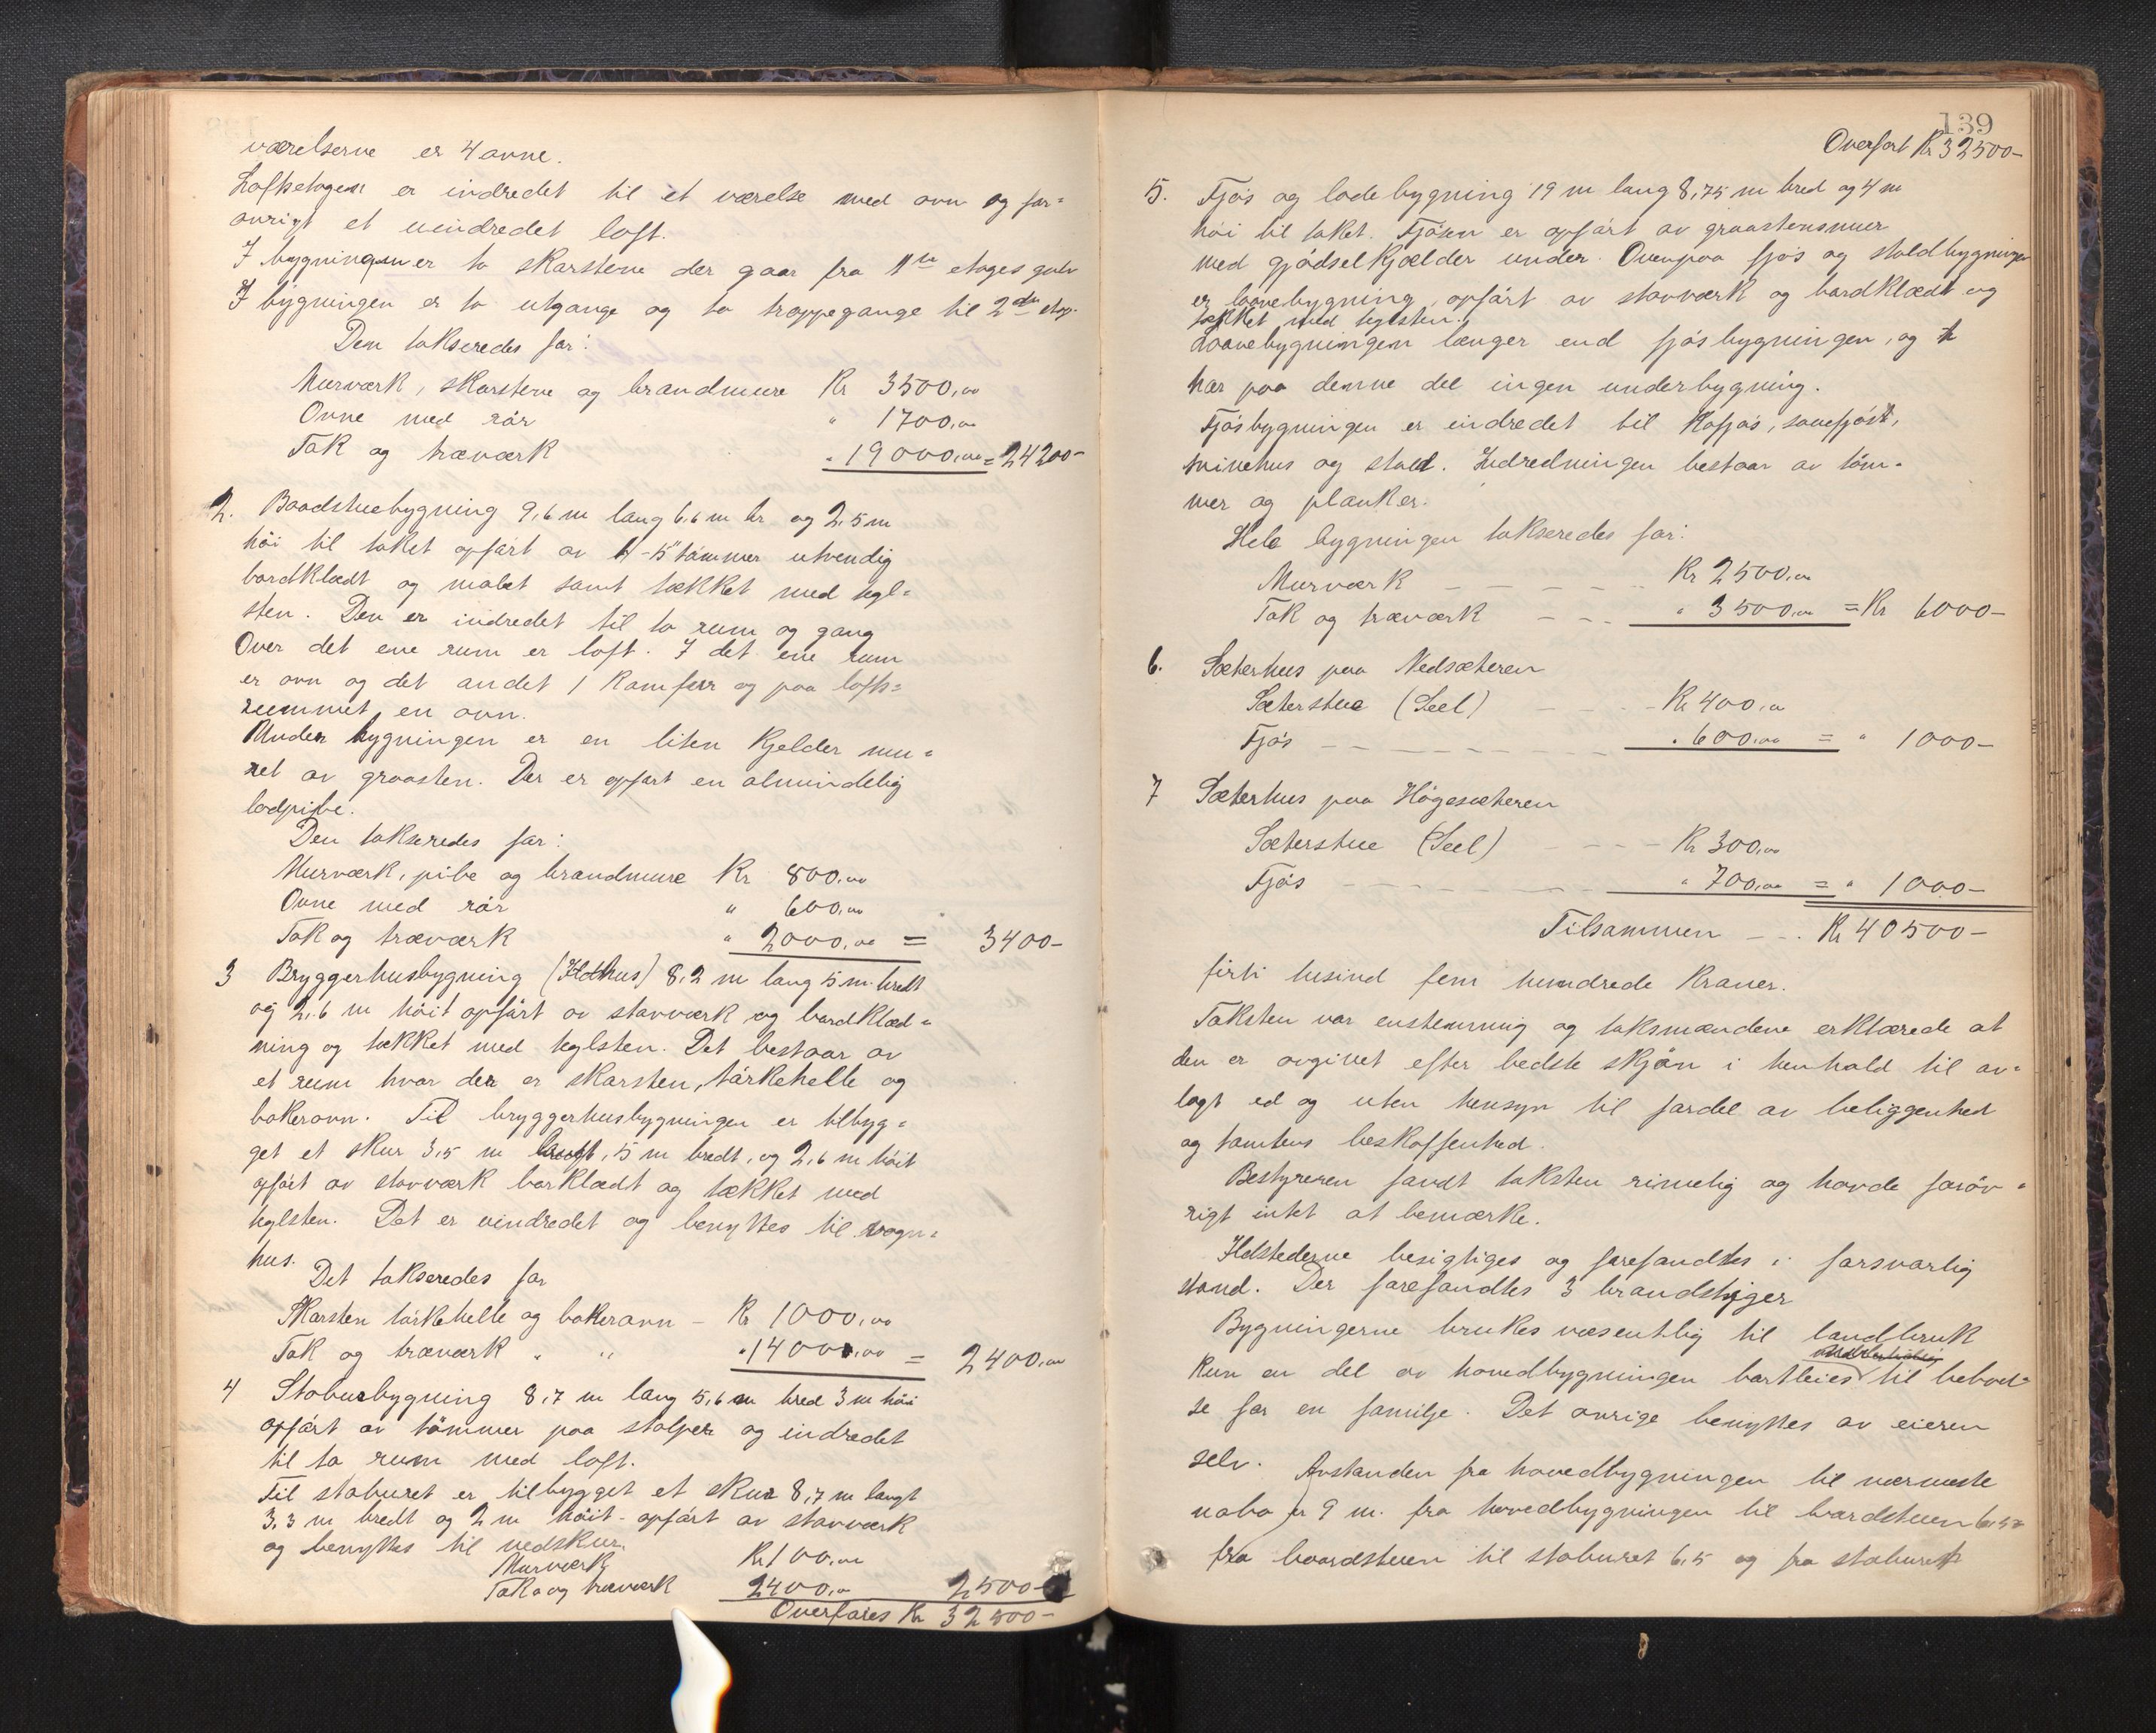 værelserne er 4 ovne.
Loftsetagen er indredet til et værelse med ovn og for=
øvrigt et uindredet loft.
I bygningen er to skorstene der gaar fra 1ste etages gulv
I bygningen er to utgange og to trappegange til 2den etag.
Den takseredes for:
Murværk, skorstene og brandmure Kr 3500,00
Ovne med rör " 1700,00
Tak og træværk " 19000,00 = 24200-
2. Baadstuebygning 9,6 m lang 6,6 m br og 2,5 m
höi til taket opfört av 4-5" tömmer utvendig
bordklædt og malet samt tækket med tegl=
sten. Den er indredet til to rum og gang
Over det ene rum er loft. I det ene rum
er ovn og det andet 1 Komfur og paa lofts=
rummet en ovn.
Under bygningen er en liten Kjelder mu=
ret av graasten. Der er opfört en almindelig
lodpibe.
Den takseredes for:
Murværk, pibe og brandmure Kr 800,00
Ovne med rör " 600,00
Tak og træværk " 2000,00 = 3400-
3 Bryggerhusbygning (Ildhus) 8,2 m lang 5 m bredt
og 2,6 m höit opfört av stavværk og bordklæd=
ning og tækket med teglsten. Det bestaar av
et rum hvor der er skorsten, törkehelle og
bakerovn. Til bryggerhusbygningen er tilbyg=
get et skur 3,5 m langt, 5 m bredt, og 2,6 m höit
opfört av stavværk borklædt og tækket med
teglsten. Det er uindredet og benyttes til vogn=
hus.
Det takseredes for
Skorsten törkehelle og bakerovn - Kr 1000,00
Tak og træværk " " " 1400,00 = 2400,00
4 Stabursbygning 8,7 m lang 5,6 m bred 3 m höi
opfört av tömmer paa stolper og indredet
til to rum med loft.
Til staburet er tilbygget et skur 8,7 m langt
3,3 m bredt og 2 m höit - opfört av stavværk
og benyttes til vedskur.
Murværk Kr 100,00
Tak og træværk 2400,00 2500-
Overføres Kr 32500-
139
Overfört Kr 32500-
5. Fjös og ladebygning 19 m lang 8,75 m bred og 4 m
höi til taket. Fjösen er opfört av graastensmur
med gjödselkjælder under. Ovenpaa fjös og staldbygningen
er laavebygning, opfört av stavværk og bordklædt og
tækket med teglsten.
Laavebygningen længer end fjösbygningen, og
har paa denne del ingen underbygning.
Fjösbygningen er indredet til Kofjös, sauefjös,
svinehus og stald. Indredningen bestaar av töm=
mer og planker.
Hele bygningen takseredes for:
Murværk - - - Kr 2500,00
Tak og træværk - - - " 3500,00 = Kr 6000-
6. Sæterhus paa Nedsæteren
Sæterstue (Seel) - - - Kr 400,00
Fjös - - - - - " 600,00 = " 1000-
7 Sæterhus paa Högesæteren
Sæterstue (Seel) - - - Kr 300,00
Fjös - - - - - " 700,00 = " 1000-
Tilsammen - - . Kr 40500-
firti tusind fem hundrede Kroner.
Taksten var enstemmig og taksmændene erklærede at
den er avgivet efter bedste skjön i henhold til av=
lagt ed og uten hensyn til fordel av beliggenhed
og tomtens beskaffenhed.
Bestyreren fandt taksten rimelig og havde forøv=
rigt intet at bemærke.
Ildstederne besigtiges og forefandtes i forsvarlig
stand. Der forefandtes 3 brandstiger
Bygningerne brukes væsentlig til landbruk
Kun en del av hovedbygningen bortleies til beboel=
se for en familje. Det øvrige benyttes av eieren
selv.
Avstanden fra hovedbygningen til nærmeste
nabo er 9 m. fra hovedbygningen til baardstuen 6,5
fra baardstuen til staburet 6,5 og fra staburet